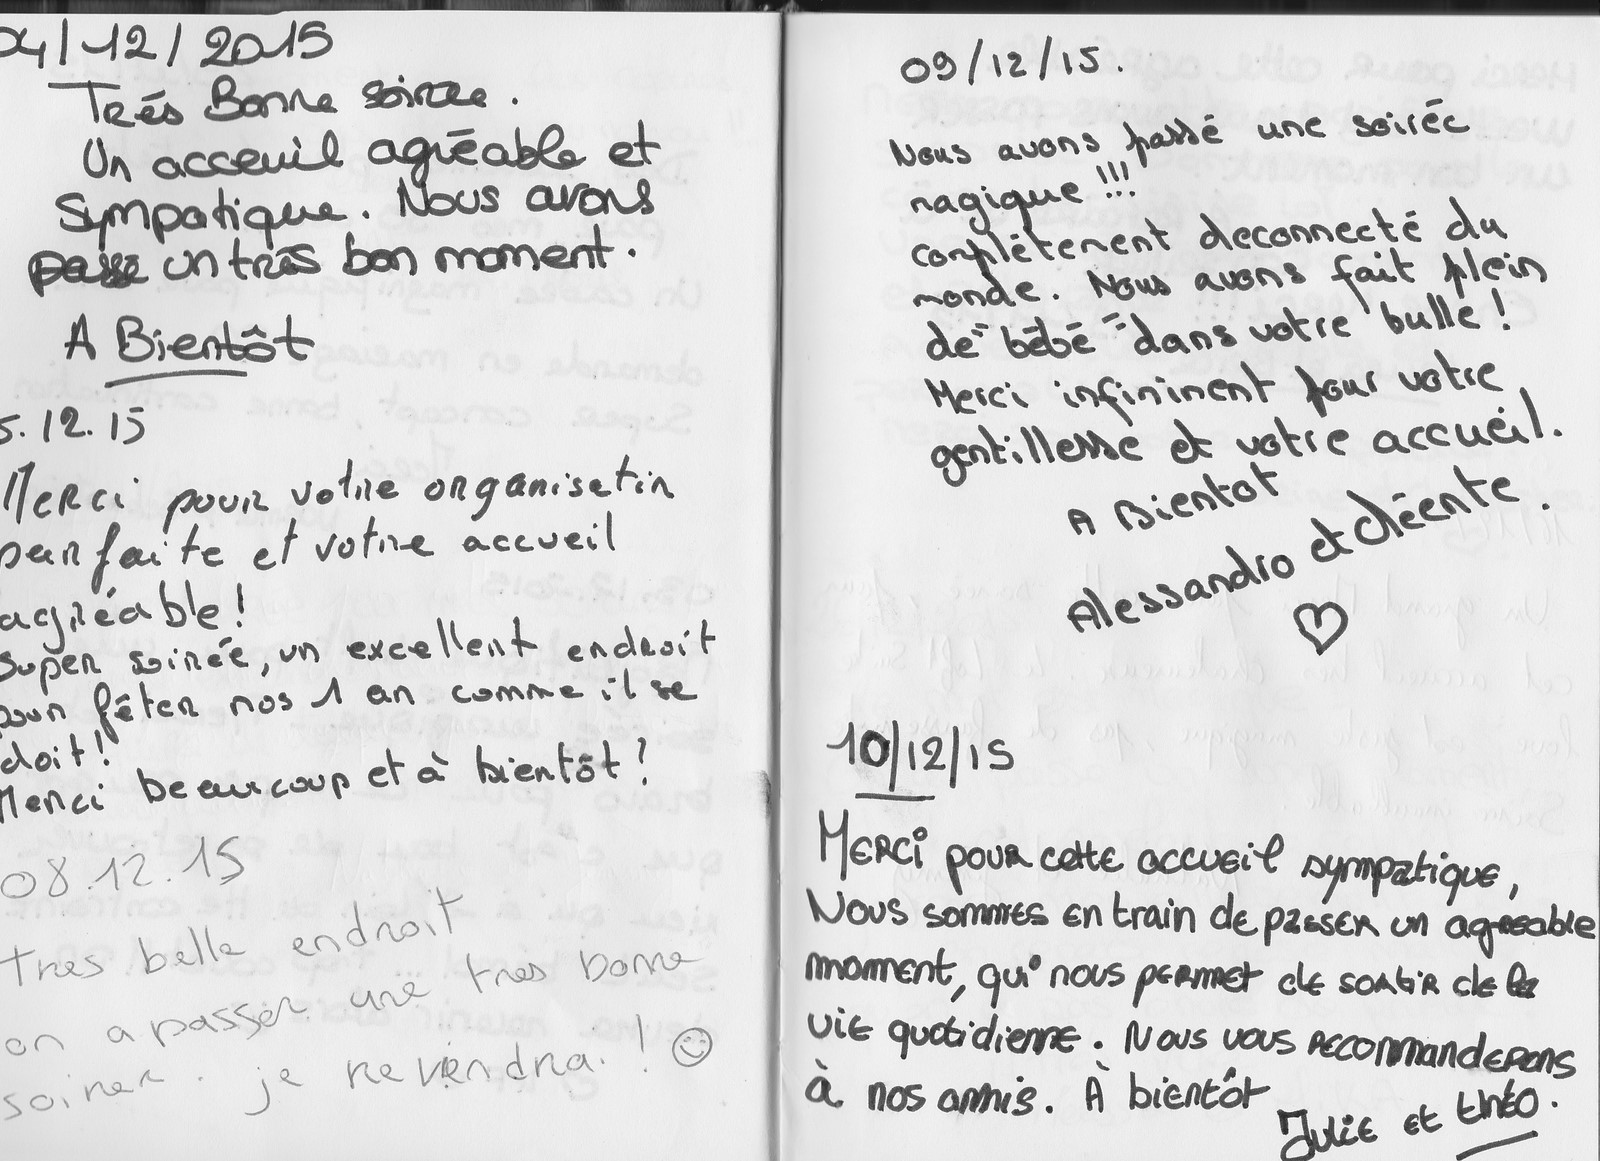 04/12/2015
Trés Bonne soirée.
Un acceuil agréable et
sympatique. Nous avons
passé un très bon moment.
A Bientôt
5.12.15
Merci pour votre organisatin
parfaite et votre accueil
agréable!
Super soirée, un excellent endroit
pour fêter nos 1 an comme il se
doit!
Merci beaucoup et à bientôt?
08.12.15
tres belle endroit
on a passer une tres bonne
soirer. je reviendrai! ☺
09/12/15.
Nous avons passé une soirée
magique!!!
complètement deconnecté du
monde. Nous avons fait plein
de "bébé" dans votre bulle!
Merci infiniment pour votre
gentillesse et votre accueil.
A Bientot
Alessandro et
♡
10/12/15
Merci pour cette accueil sympatique,
Nous sommes en train de passer un agréable
moment, qui nous permet de sortir de la
vie quotidienne. Nous vous recommanderons
à nos amis. À bientôt
Julie et théo.